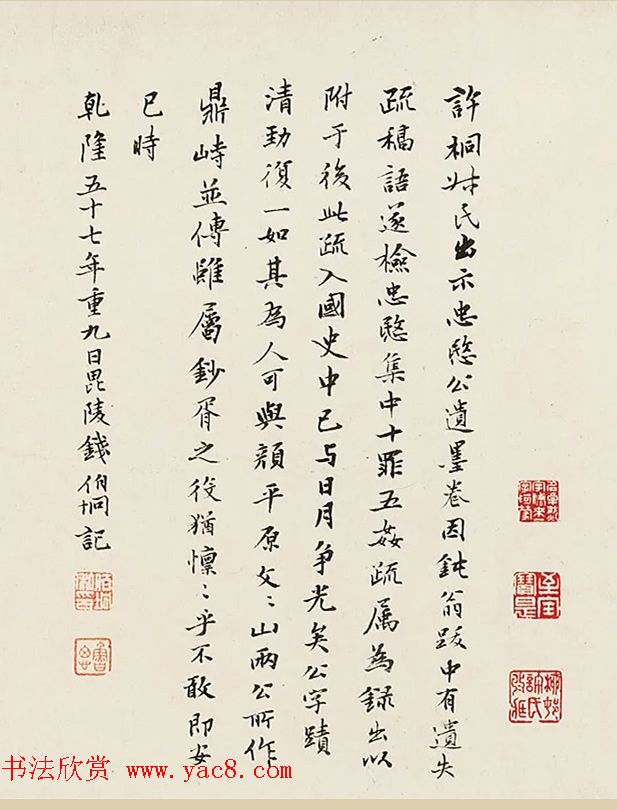 許桐村氏出示忠愍公遺墨卷因鈍翁跋中有遺失
疏稿語遂檢忠愍集中十罪五姦疏属為錄出以
附于後此疏入國史中已与日月争光矣公字蹟
清勁復一如其為人可與顏平原文〻山兩公所作
鼎峙並傳雖屬鈔胥之役猶懍〻乎不敢即安
已時
乾隆五十七年重九日毘陵錢伯坰記
书法欣赏 www.yac8.com